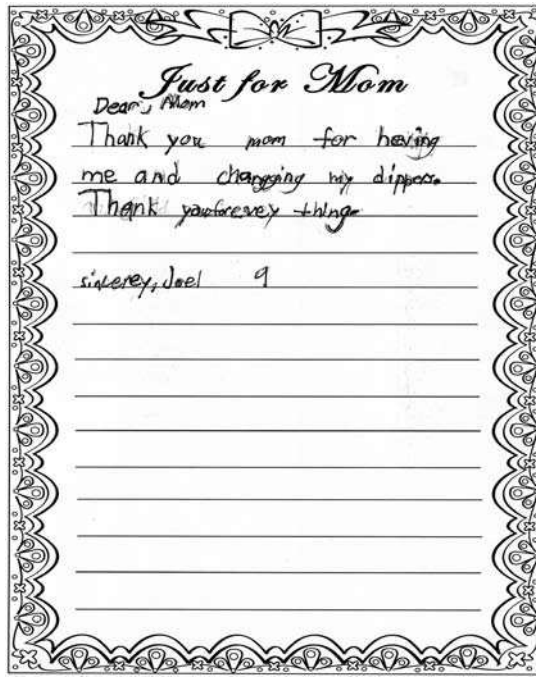 Just for Mom
Dear, Mom
Thank you mom for having
me and changging my dippers.
Thank youforevey thing.
sincerey, Joel 9